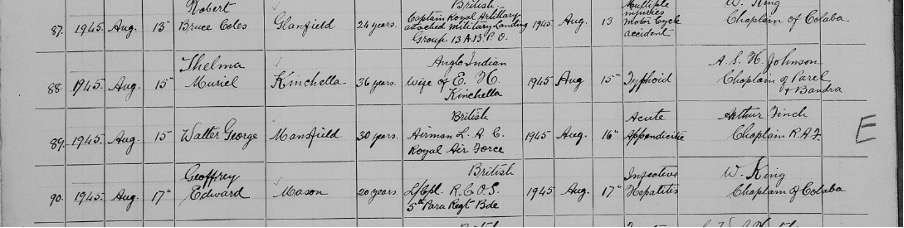 Robert British W. King
87. 1945. Aug. 13" Bruce Coles Glanfield 24 years. Captain Royal Artillary attached Military Landing Group 13 A.B.P.O. 1945. Aug. 13 Multiple injuries Motor Cycle accident Chaplain of Colaba.
Thelma Anglo Indian A. S. H. Johnson
88 1945. Aug. 15" Muriel Kinchella 36 years. Wife of E. H. Kinchella 1945 Aug 15" Typhoid Chaplain of Parel + Bandra
British Acute Arthur Finch
89. 1945. Aug. 15" Walter George Mansfield 30 years. Airman L. A. C. Royal Air Force 1945. Aug. 16" Appendicitis Chaplain R.A.F E
Geoffrey British Infective W. King
90. 1945. Aug. 17" Edward Mason 20 years. L/Cpl. R.C.O.S. 5th Para Regt Bde 1945. Aug. 17" Hepatitis Chaplain of Colaba